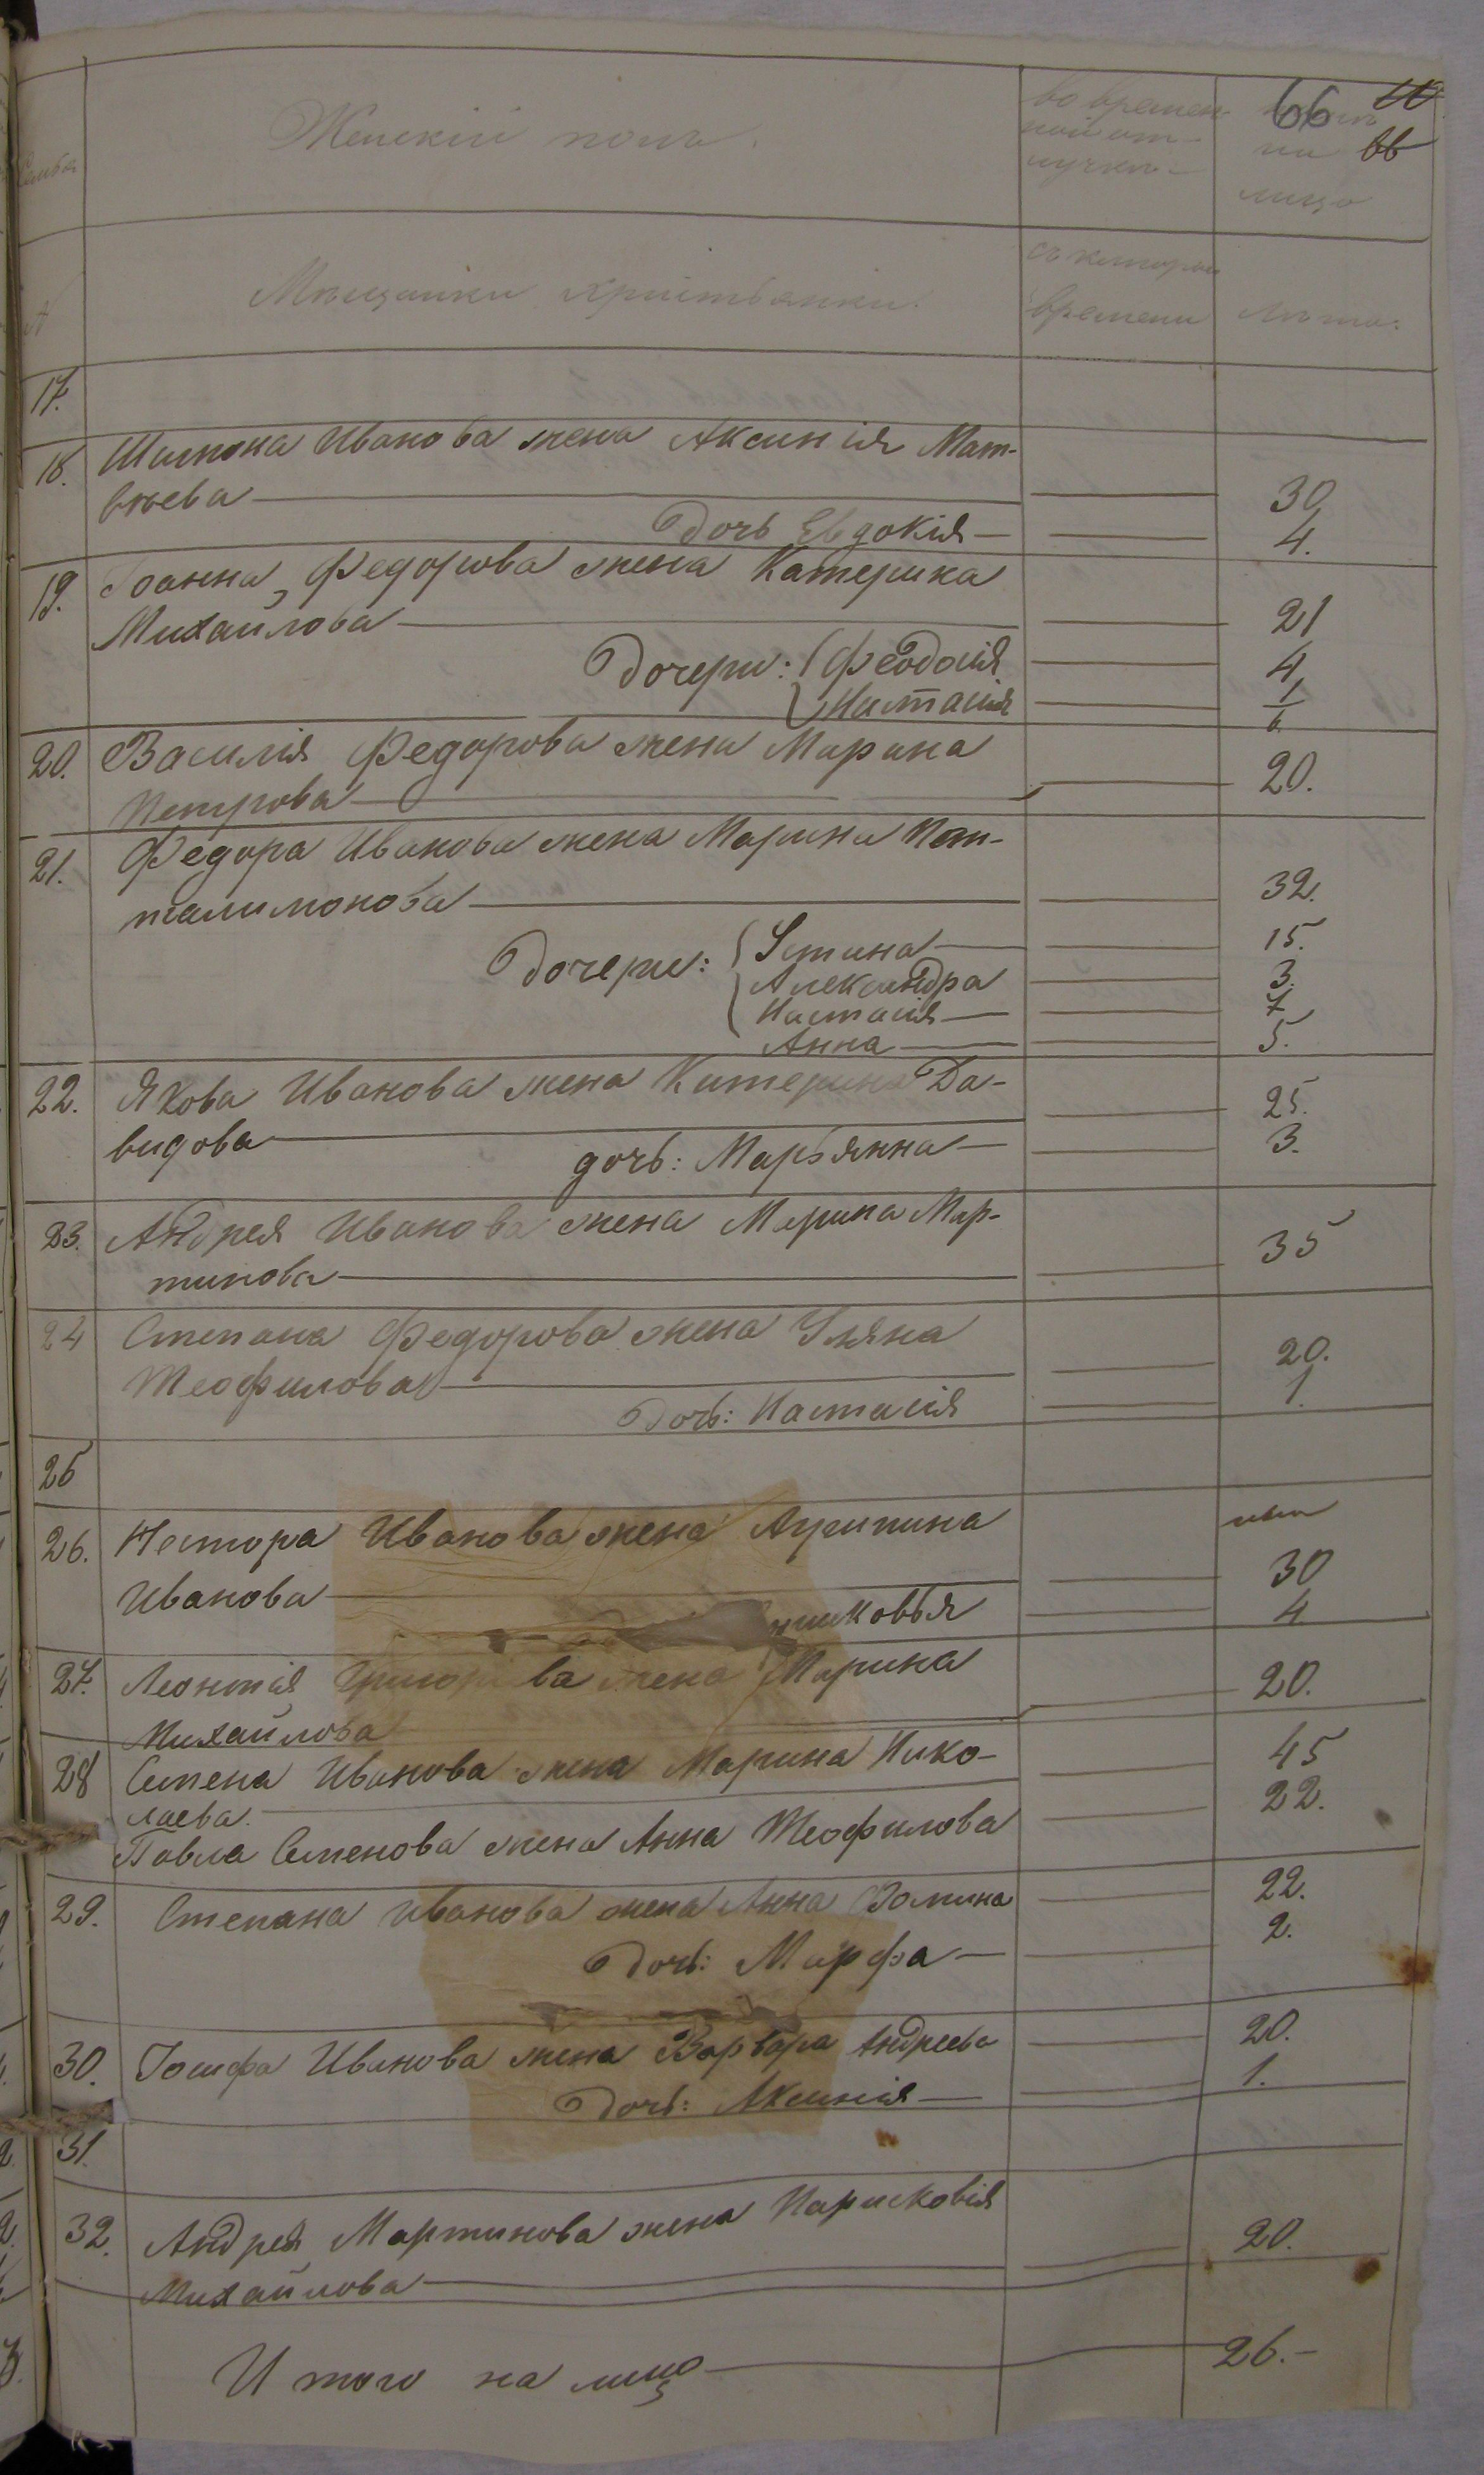 66
66
Семья
Женскій полъ.
во времен-
ной от-
лучкѣ
на
лицо
№
Мѣщанки христьянки.
съ котораго
времени
лѣта:
17.
18. Шимона Иванова жена Аксинія Мат-
вѣева 30
Дочь Евдокія 4.
19. Іоанна Федорова жена Катерина
Михайлова 21
Дочери: Феодосія 4
Настасія 1/6
20. Василія Федорова жена Марина
Петрова 20.
21. Федора Иванова жена Марина Пан-
талимонова 32.
Дочери: Устина 15.
Александра 3.
Настасія 7
Анна 5.
22. Якова Иванова жена Катерина Да-
видова 25.
дочь: Марьянна 3.
23. Андрея Иванова жена Марина Мар-
тинова 35
24 Степана Федорова жена Уляна
Теофилова 20.
Дочь: Настасія 1.
25
26. Нестора Иванова жена Агрипина
Иванова 30
4
27. Леонтія Григорьева жена Марина
Михайлова 20.
28 Семена Иванова жена Марина Нико-
лаева. 45
Павла Семенова жена Анна Теофилова 22.
29. Степана Иванова жена Анна Фомина 22.
Дочь: Марфа 2.
30. Іосифа Иванова жена Варвара Андреева 20.
Дочь: Аксинія 1.
31.
32. Андрея Мартинова жена Парасковія
Михайлова 20.
Итого на лицо 26.